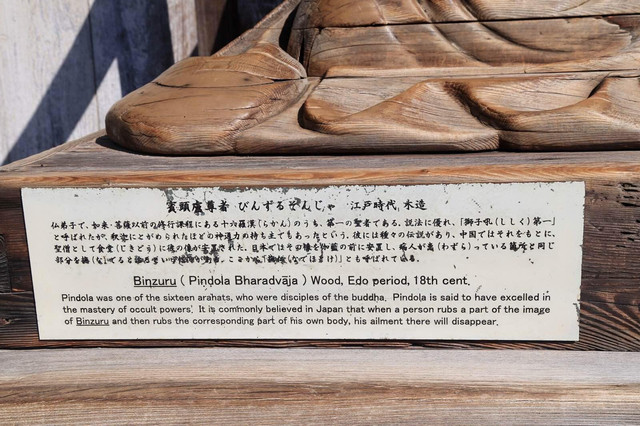 賓頭盧尊者 びんずるそんじゃ 江戸時代、木造
仏弟子で、如来・菩薩以前の修行課程にある十六羅漢(らかん)のうち、第一の聖者である。説法に優れ、「獅子吼(ししく)第一」
と呼ばれたが、釈迦にとがめられたほどの神通力の持ち主でもあったという。彼には種々の伝説があり、中国ではそれをもとに、
聖僧として食堂(じきどう)に彼の像が安置された。日本ではその像を伽藍の前に安置し、病人が患(わずら)っている箇所と同じ
部分を撫(な)でると
ここから「撫仏(なでぼとけ)」とも呼ばれている。
Binzuru ( Piṇḍola Bharadvāja ) Wood, Edo period, 18th cent.
Pindola was one of the sixteen arahats, who were disciples of the buddha. Pindola is said to have excelled in
the mastery of occult powers. It is commonly believed in Japan that when a person rubs a part of the image
of Binzuru and then rubs the corresponding part of his own body, his ailment there will disappear.